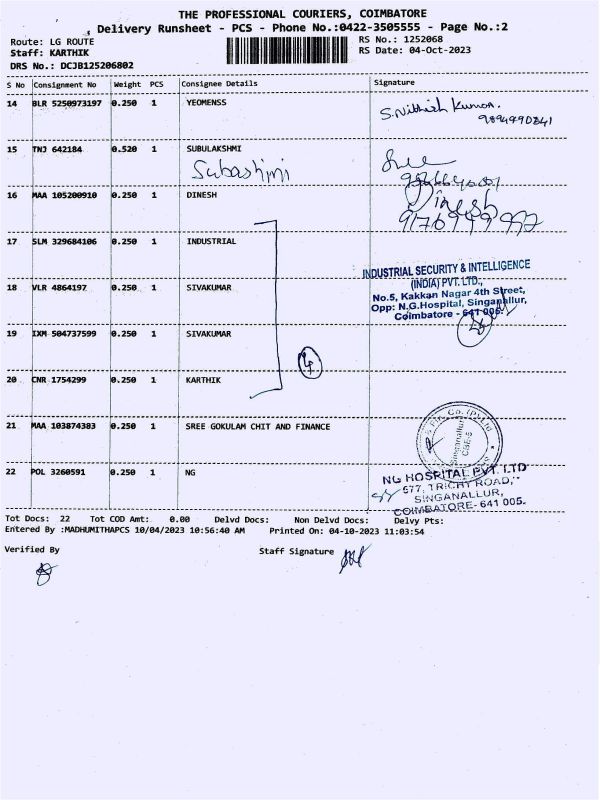 THE PROFESSIONAL COURIERS, COIMBATORE
Delivery Runsheet - PCS - Phone No.:0422-3505555 - Page No.:2
Route: LG ROUTE RS No.: 1252068
Staff: KARTHIK RS Date: 04-Oct-2023
DRS No.: DCJB125206802
S No Consignment No Weight PCS Consignee Details Signature
14 BLR 5250973197 0.250 1 YEOMENSS
S.Nithish Kumar.
9894990841
15 TNJ 642184 0.520 1 SUBULAKSHMI
Subashini
16 MAA 105200910 0.250 1 DINESH
Dinesh
17 SLM 329684106 0.250 1 INDUSTRIAL
INDUSTRIAL SECURITY & INTELLIGENCE
(INDIA) PVT. LTD.,
No.5, Kakkan Nagar 4th Street,
Opp: N.G.Hospital, Singanallur,
Coimbatore - 641 005.
18 VLR 4864197 0.250 1 SIVAKUMAR
19 IXM 504737599 0.250 1 SIVAKUMAR
4
20 CNR 1754299 0.250 1 KARTHIK
21 MAA 103874383 0.250 1 SREE GOKULAM CHIT AND FINANCE
Co. (P) Ltd
Singanallur
CBE-5
22 POL 3260591 0.250 1 NG
NG HOSPITAL PVT. LTD
577, TRICHY ROAD,
SINGANALLUR,
COIMBATORE- 641 005.
Tot Docs: 22 Tot COD Amt: 0.00 Delvd Docs: Non Delvd Docs: Delvy Pts:
Entered By :MADHUMITHAPCS 10/04/2023 10:56:40 AM Printed On: 04-10-2023 11:03:54
Verified By Staff Signature